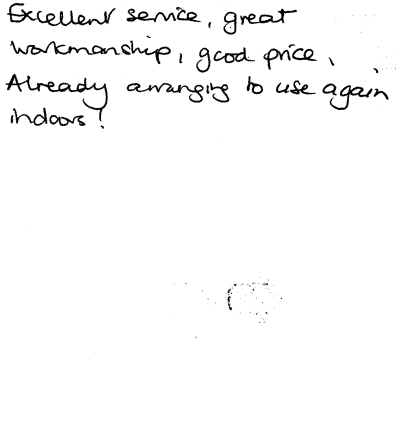 Excellent service, great
workmanship, good price,
Already arranging to use again
indoors!